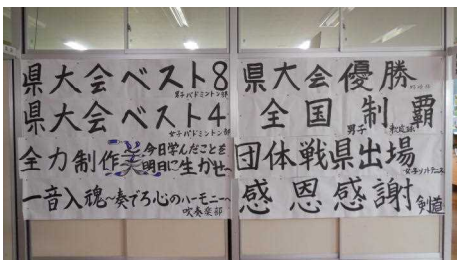 県大会ベスト8
男子バドミントン部
県大会ベスト4
女子バドミントン部
全力制作美 今日学んだことを
明日に生かせ~
一音入魂~奏でろ心のハーモニー~
吹奏楽部
県大会優勝
全国制覇
男子
団体戦県出場
女子ソフトテニス
感恩感謝
剣道